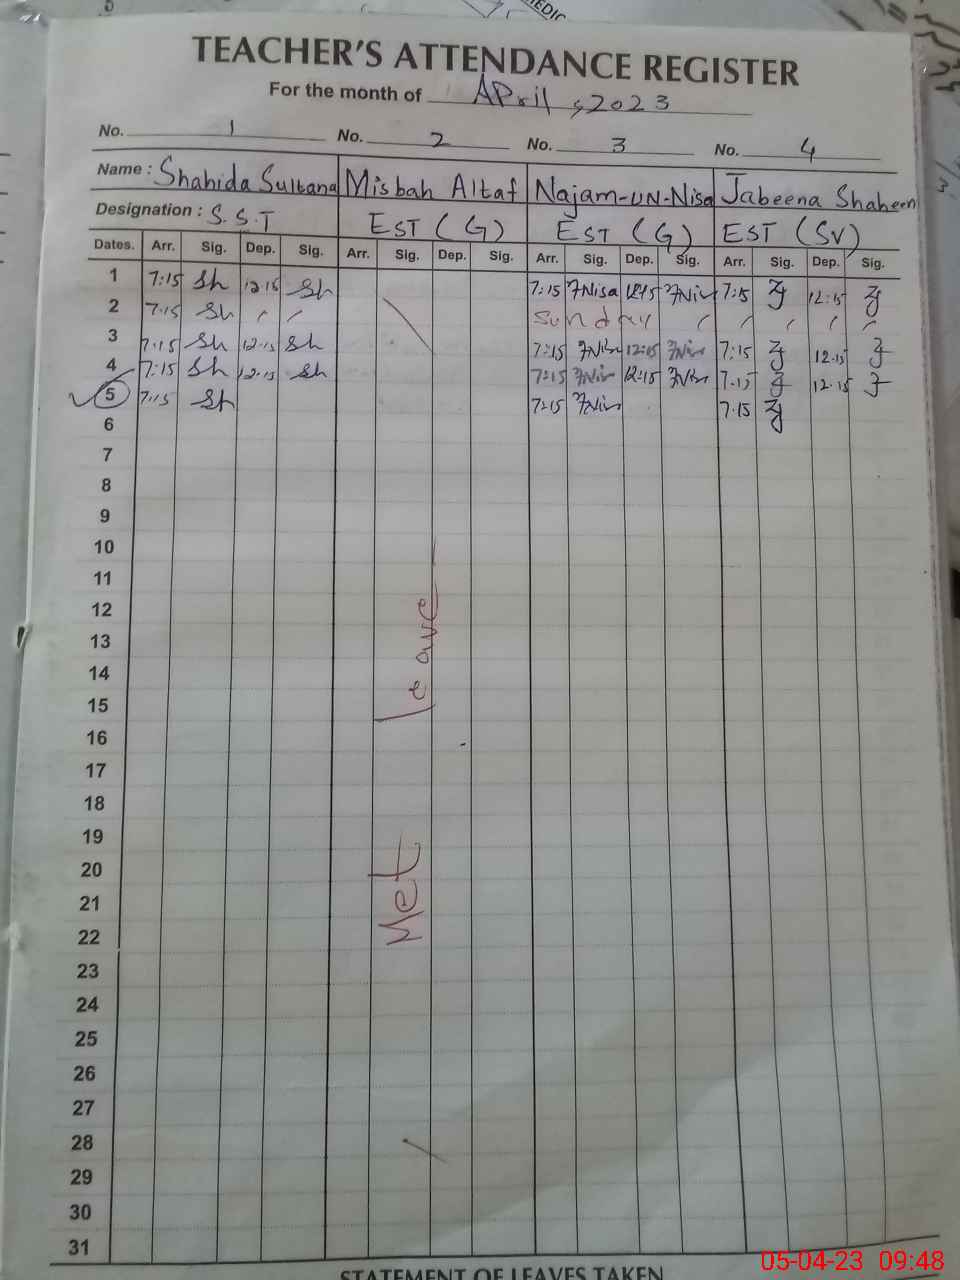 MEDIC
TEACHER'S ATTENDANCE REGISTER
For the month of April, 2023
No. 1 No. 2 No. 3 No. 4
Name : Shahida Sultana Misbah Altaf Najam-UN-Nisa Jabeena Shaheen
Designation : S.S.T EST (G) EST (G) EST (SV)
Dates. Arr. Sig. Dep. Sig. Arr. Sig. Dep. Sig. Arr. Sig. Dep. Sig. Arr. Sig. Dep. Sig.
1 7:15 Sh 12.15 Sh 7:15 Nisa 12:15 7:15 12:15
2 7.15 Sh Sunday
3 7.15 Sh 12.15 Sh 7:15 12:15 7:15 12.15
4 7:15 Sh 12.15 Sh 7:15 12:15 7.15 12.15
5 7.15 Sh 7:15 7.15
6
7
8
9
10
11
12
13
14
15
16
17
18
19
20
21
22
23
24
25
26
27
28
29
30
31
Met leave
STATEMENT OF LEAVES TAKEN
05-04-23 09:48